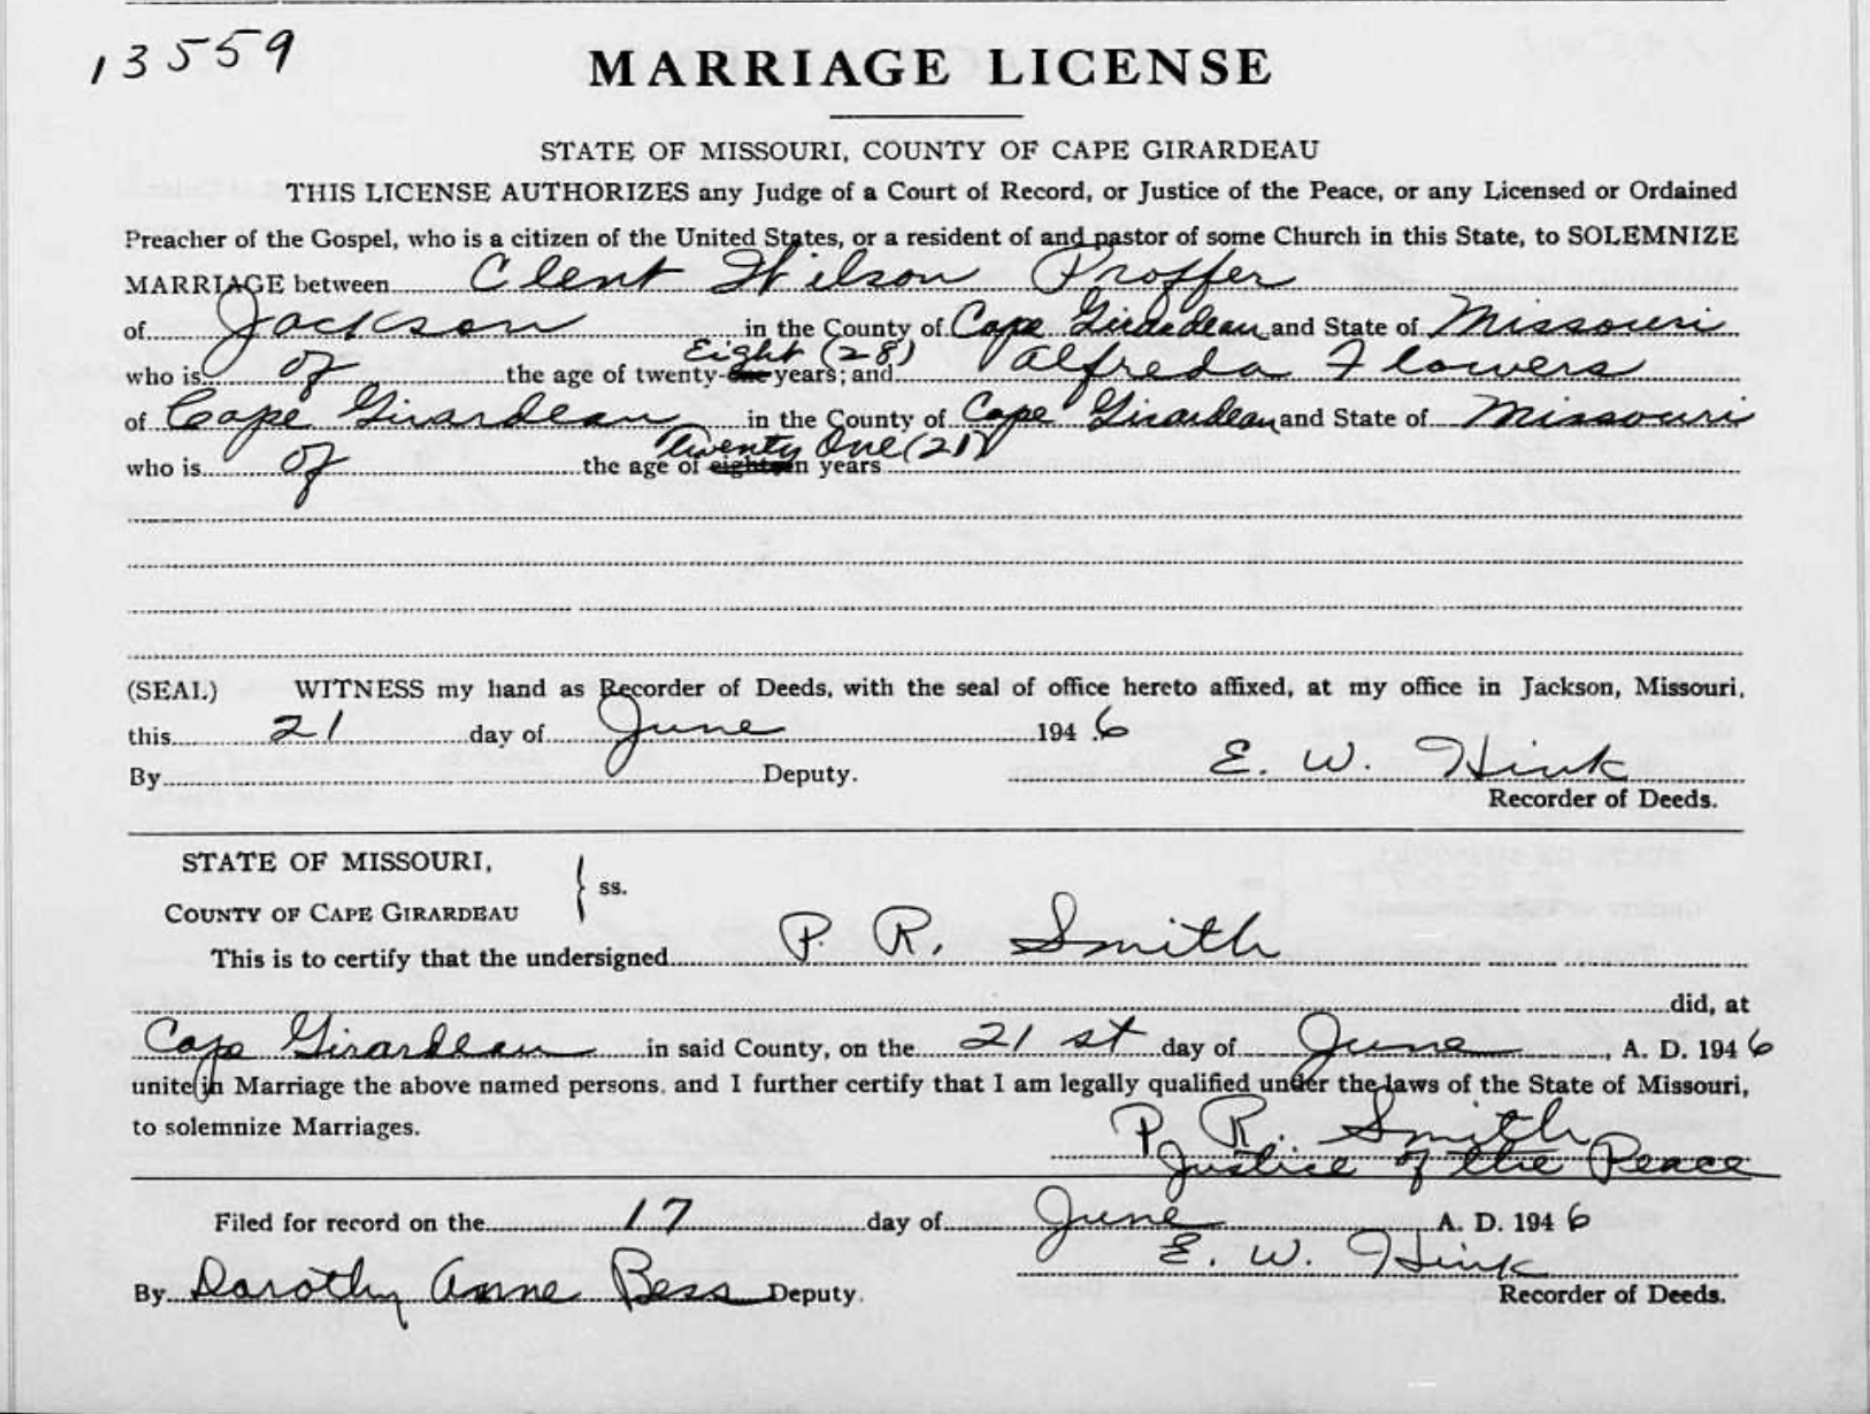 13559
MARRIAGE LICENSE
STATE OF MISSOURI, COUNTY OF CAPE GIRARDEAU
THIS LICENSE AUTHORIZES any Judge of a Court of Record, or Justice of the Peace, or any Licensed or Ordained
Preacher of the Gospel, who is a citizen of the United States, or a resident of and pastor of some Church in this State, to SOLEMNIZE
MARRIAGE between Clent Wilson Proffer
of Jackson in the County of Cape Girardeau and State of Missouri
Eight (28)
who is of the age of twenty-one years; and Alfreda Flowers
of Cape Girardeau in the County of Cape Girardeau and State of Missouri
Twenty One (21)
who is of the age of eighteen years
(SEAL) WITNESS my hand as Recorder of Deeds, with the seal of office hereto affixed, at my office in Jackson, Missouri,
this 21 day of June 1946
By Deputy. E. W. Hink
Recorder of Deeds.
STATE OF MISSOURI,
COUNTY OF CAPE GIRARDEAU } ss.
This is to certify that the undersigned P. R. Smith
did, at
Cape Girardeau in said County, on the 21 st day of June, A. D. 1946
unite in Marriage the above named persons, and I further certify that I am legally qualified under the laws of the State of Missouri,
to solemnize Marriages. P. R. Smith
Justice of the Peace
Filed for record on the 17 day of June A. D. 1946
E. W. Hink
By Dorothy Anne Bess Deputy. Recorder of Deeds.